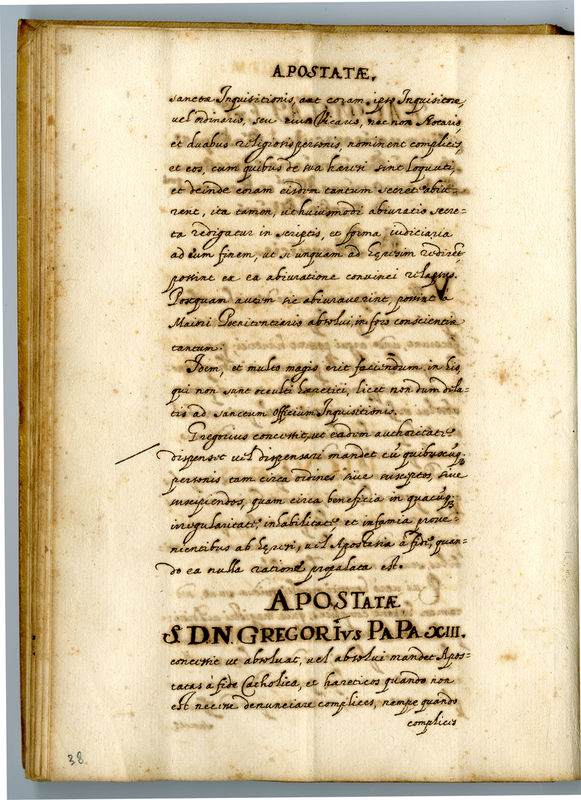 APOSTATÆ.
sanctæ Inquisitionis, aut coram ipso Inquisitore,
vel ordinario, seu eius Vicario, nec non Notario,
et duabus religiosis personis, nominent complices,
et eos, cum quibus de sua hæresi sint loquuti,
et deinde coram eisdem tantum secretè abiu-
rent, ita tamen, ut huiusmodi abiuratio secre-
ta redigatur in scriptis, et forma iudiciaria
ad eum finem, ut si unquam ad hęresim redirēt
possint ex ea abiuratione convinci relapsos.
Postquam autem sic abiuraverint, possint a
Maiori Poenitentiario absolui, in foro conscientiæ
tantum.
Idem, et multo magis erit faciendum in his,
qui non sunt occulti hæretici, licet nondum dela-
tis ad sanctum Officium Inquisitionis.
Gregorius concessit, ut eadem authoritate
dispenset vel dispensari mandet cū quibuscuq;
personis tam circa ordines sive susceptos, sive
suscipiendos, quam circa beneficia in quacūq;
irregularitate, inhabilitate, et infamia prove-
nientibus ab hęresi, vel Apostasia à fide, quan-
do ea nulla ratione propalata est.
APOSTATÆ
S. D.N. GREGORIVS PAPA XIII.
concessit ut absoluat, vel absolui mandet Apos-
tatas à fide Catholica, et hæreticos quando non
est necesse denunciare complices, nempe quando
complices
38.